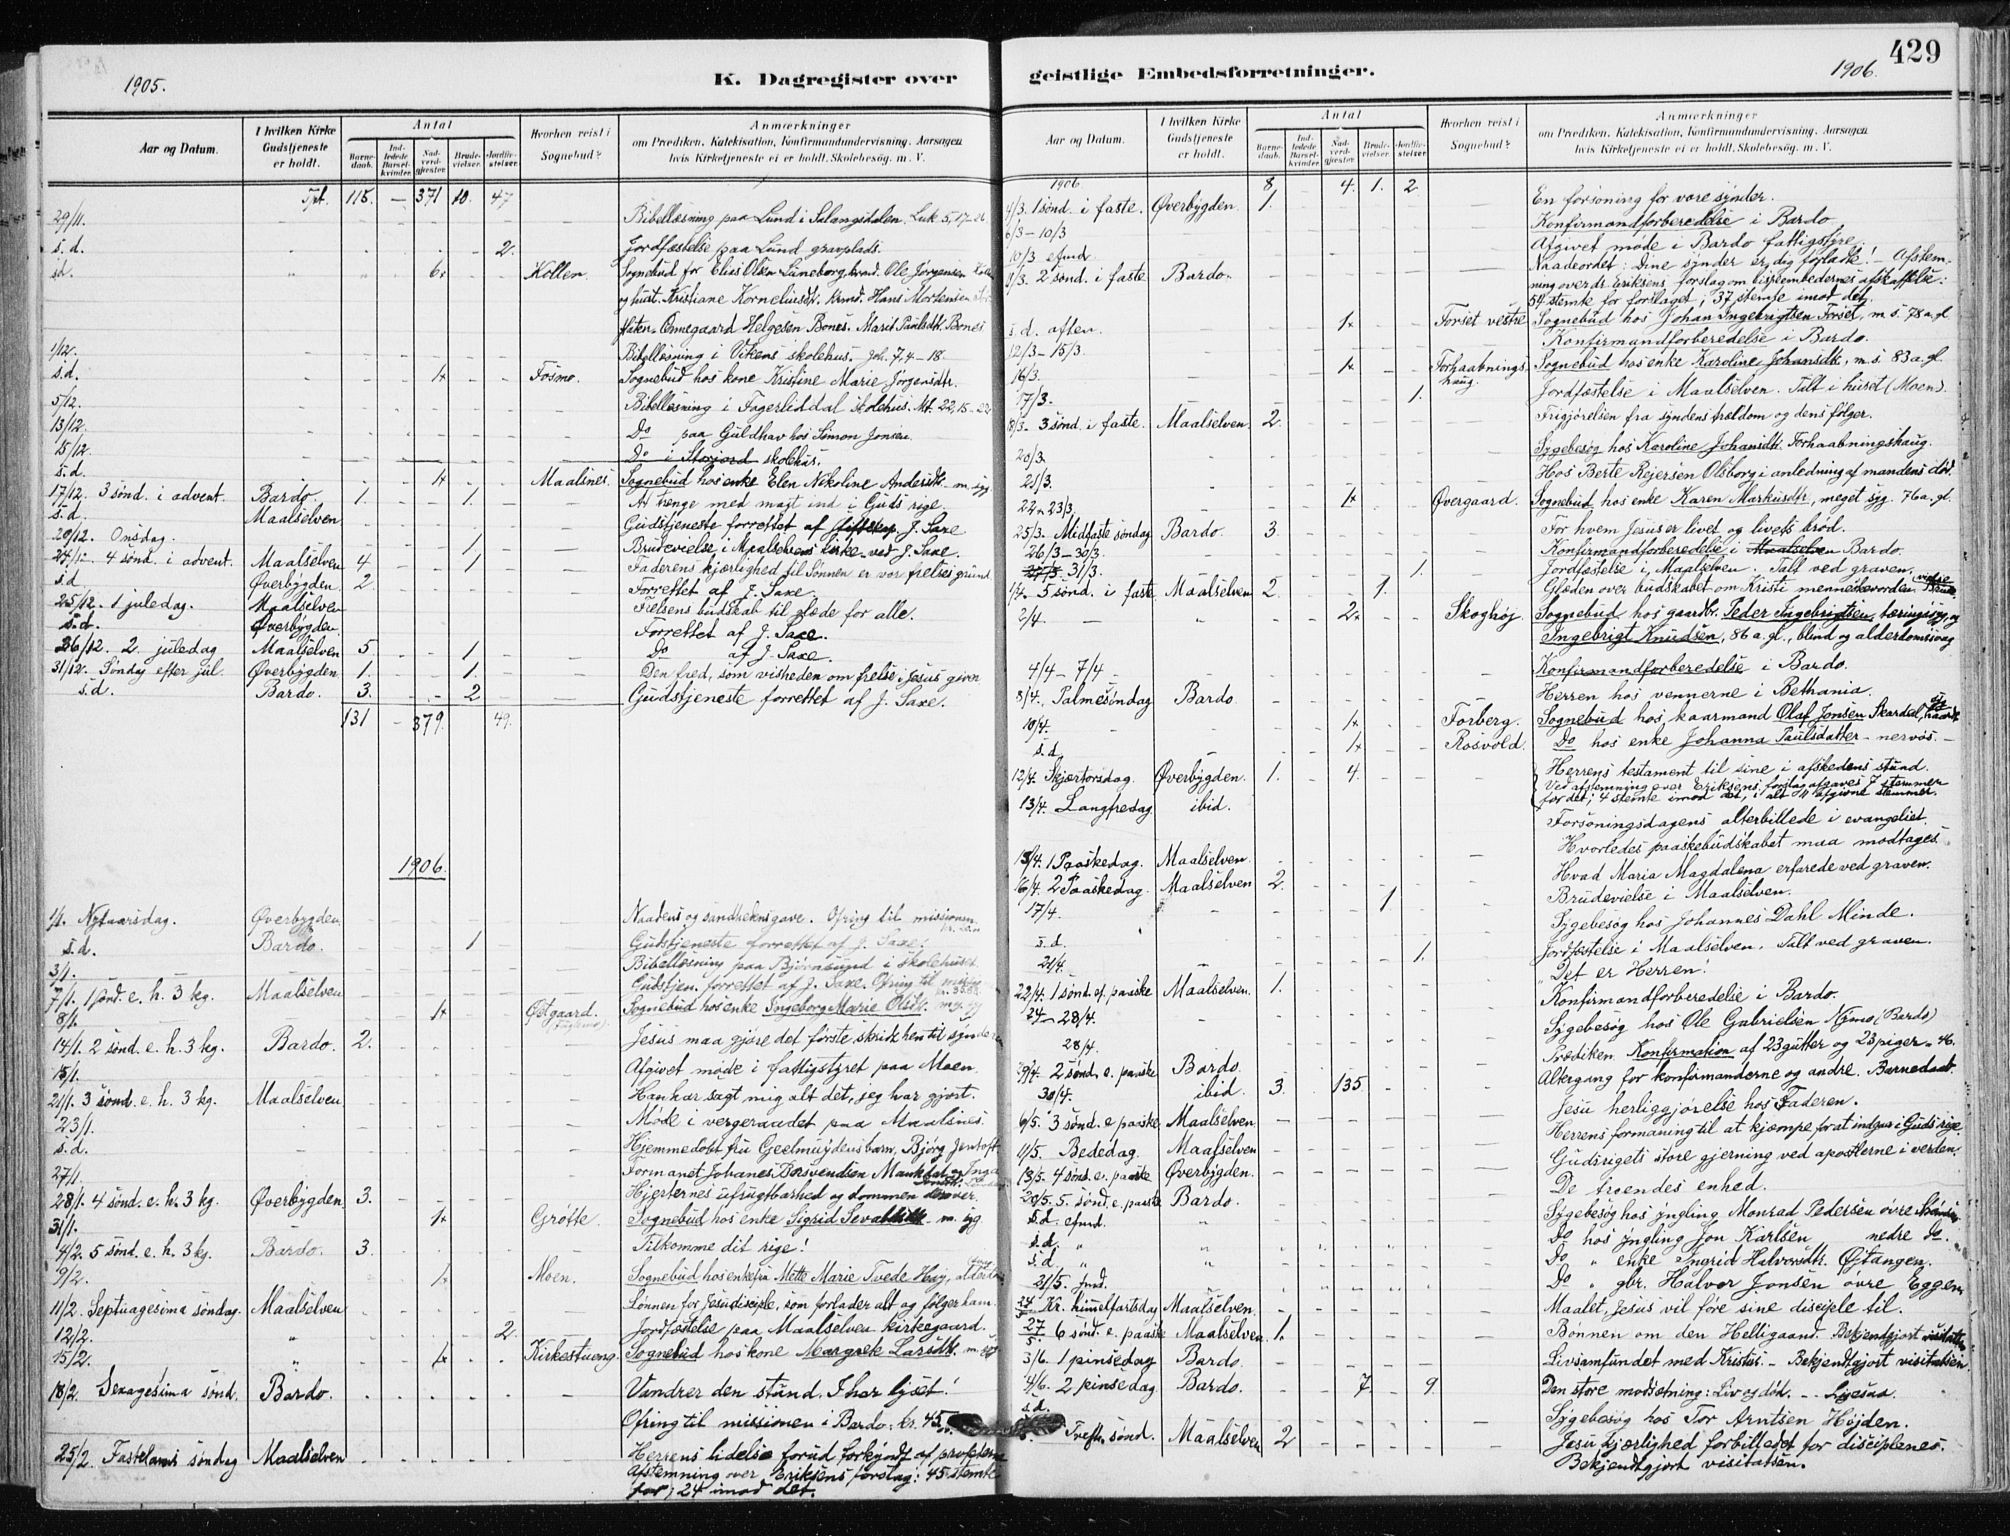 1905.
K. Dagregister over
Aar og Datum.
I hvilken Kirke Gudstjeneste er holdt.
Antal
Barne-daab.
Ind-ledede Barsel-kvinder.
Nad-verd-gjæster.
Brude-vielser.
Jordfæ-stelser.
Hvorhen reist i Sognebud?
Anmærkninger
om Prædiken, Katekisation, Konfirmandundervisning. Aarsagen
hvis Kirketjeneste ei er holdt. Skolebesøg. m. V.
Tpt. 115. – 371 10. 47.
29/11. Bibellæsning paa Lund i Salangsdalen. Luk 5, 17-26
s. d. 2. Jordfæstelse paa Lund gravplads.
sd. 6+ Kollen. Sognebud for Elias Olsen Luneborg, Ole Jørgensen
og hust. Kristiane Korneliusdtr. Hans Mortensen
Onnegaard Helgesen Bones. Marit Paulsdtr. Bones
1/12. Bibellæsning i Vikens skolehus. Joh. 7, 4-18.
s. d. 1+ Fosmo. Sognebud hos kone Kristine Marie Jörgensdtr.
5/12. Bibellæsning i Fagerliddal skolehus. Mt. 22, 15-22
13/12. Do paa Guldhav hos Simon Jonsen.
15/12. Do i Storjord skolehus.
s. d. 1+ Maalsnes. Sognebud hos enke Elen Nikoline Andersdtr. m. syg
17/12. 3 sönd. i advent. Bardo. 1. 1. At trenge med magt ind i Guds rige
s. d. Maalselven Gudstjeneste forrettet af J. Saxe
20/12. Onsdag. 1 Brudevielse i Maalselvens kirke ved J. Saxe.
24/12. 4 sönd. i advent. Maalselven 4 1 Faderens kjærlighed til Sönnen er vor frelses grund
s. d. Øverbygden. 2. Forrettet af J. Saxe.
25/12. 1 juledag. Maalselven Frelsens budskab til glæde for alle.
s. d. Øverbygden. Forrettet af J. Saxe.
26/12. 2. juledag Maalselven 5 1 Do af J. Saxe.
31/12. Söndag efter jul. Øverbygden 1. 1. Den fred, som visheden om frelse i Jesus giver
s. d. Bardo. 3. 2 Gudstjeneste forrettet af J. Saxe.
131 – 379. 49.
1906.
1/1. Nytaarsdag. Øverbygden. Naadens og sandhedens gave. Ofring til missionen
s. d. Bardo. 1 Gudstjeneste forrettet af J. Saxe.
3/1. Bibellæsning paa Björnsund i skolehuset.
7/1. 1 sönd. e. h. 3 kg. Maalselven Gudstjen. forrettet af J. Saxe. Ofring til
8/1. 1+ Östgaard. Sognebud hos enke Ingeborg Marie Olsdtr.
14/1. 2 sönd. e. h. 3 kg. Bardo. 2. Jesus maa gjøre det første skridt hen til synderen
15/1. Afgivet møde i fattigstyret paa Moen.
21/1. 3 sönd. e. h. 3 kg. Maalselven Han har sagt mig alt det, jeg har gjort.
23/1. Møde i vergeraadet paa Maalsnes.
s. d. Hjemmedøbt fru Geelmuydens barn, Björg
27/1. Formanet Johanes Torsvendsen
28/1. 4 sönd. e. h. 3 kg. Øverbygden 3. Hjerternes ufrugtbarhed og dommen derover.
31/1. 1+ Grötte. Sognebud hos enke Sigrid m. syg
4/2. 5 sönd. e. h. 3 kg. Bardo. 3. Tilkomme dit rige!
9/2. 1+ Moen. Sognebud hos enkefru Mette Marie Tvede
11/2. Septuagesima söndag. Maalselven Lønnen for Jesu disciple, som forlader alt og følger ham.
12/2. " 2. Jordfæstelse paa Maalselven kirkegaard.
15/2. " 1+ Kirkestuen. Sognebud hos kone Margrete Larsdtr.
18/2. Sexagesima sönd. Bardo. Vandrer den stund, I har lyset!
Ofring til missionen i Bardo: kr. 45.
25/2. Fastelavns söndag Maalselven Herrens lidelse forud forkyndt af profeterne
Afstemning over Eriksens forslag: 45 stemte
for, 24 imod det.
429
1906.
geistlige Embedsforretninger.
Aar og Datum.
I hvilken Kirke Gudstjeneste er holdt.
Antal
Barne-daab.
Ind-ledede Barsel-kvinder.
Nad-verd-gjæster.
Brude-vielser.
Jordfæ-stelser.
Hvorhen reist i Sognebud?
Anmærkninger
om Prædiken, Katekisation, Konfirmandundervisning, Aarsagen
hvis Kirketjeneste ei er holdt. Skolebesøg. m. V.
1906 8. – 4. 1. 2.
4/3. 1 sönd. i faste. Øverbygden. 1. En forsoning for vore synder.
6/3 – 10/3 Konfirmandforberedelse i Bardo.
10/3 efmd. Afgivet møde i Bardo fattigstyre.
11/3. 2 sönd. i faste Bardo. Naadeordet: Dine synder er dig forladte! – Afstem-
ning over dr. Eriksens forslag om bispeembedernes afskaffelse:
54 stemte for forslaget; 37 stemte imod det.
s. d. aften. 1+ Forset vestre Sognebud hos Johan Ingebrigtsen Forset, m. s. 78 a. gl.
12/3 – 15/3. Konfirmandforberedelse i Bardo.
16/3. 1+ Forhaabnings-haug. Sognebud hos enke Karoline Johansdtr, m. s. 83 a. gl.
17/3. 1. Jordfæstelse i Maalselven. Talt i huset (Moen).
18/3. 3 sönd. i faste. Maalselven 2. Frigjørelsen fra syndens trældom og dens følger.
20/3. Sygebesøg hos Karoline Johansdtr. Forhaabningshaug.
21/3. Hos Berte Rejersen Olsborg i anledning af mandens död.
22 n 23/3. 1+ Øvergaard. Sognebud hos enke Karen Markusdtr, meget syg. 76 a. gl.
25/3. Midfaste söndag Bardo. 3. For hvem Jesus er livet og livets brød.
26/3 – 30/3. Konfirmandforberedelse i Bardo.
31/3. 1. Jordfæstelse i Maalselven. Talt ved graven.
1/4. 5 sönd. i faste Maalselven 2. 1. Glæden over budskabet om Kristi menneskevorden.
2/4. – " 2+ Skoghøj. Sognebud hos gaardbr. Peder Ingebrigtsen, tæringssyg, og
Ingebrigt Knudsen, 86 a. gl., blind og alderdomssvag
4/4 – 7/4 Konfirmandforberedelse i Bardo.
8/4. Palmesöndag Bardo. Herren hos vennerne i Bethania.
10/4. 1+ Forberg. Sognebud hos kaarmand Olaf Jonsen Skardal,
s. d. 1+ Rosvold. Do hos enke Johanna Paulsdatter – nervøs. –
12/4. Skjærtorsdag. Øverbygden. 1. 4. Herrens testament til sine i afskedens stund.
Ved afstemning over Eriksens forslag afgaves 7 stemmer
for det; 4 stemte imod det, i alt 11 afgivne stemmer.
13/4. Langfredag ibid. Forsoningsdagens alterbillede i evangeliet.
15/4. 1 Paaskedag. Maalselven. Hvorledes paaskebudskabet maa modtages
16/4. 2 Paaskedag. Maalselven 2. Hvad Maria Magdalena erfarede ved graven.
17/4. 1 Brudevielse i Maalselven.
s. d. Sygebesøg hos Johannes Dahl Minde.
21/4. 1. Jordfæstelse i Maalselven. Talt ved graven.
22/4. 1 sönd. ef. paaske Maalselven. 1. "Det er Herren!
24 – 28/4. Konfirmandforberedelse i Bardo.
28/4. Sygebesøg hos Ole Gabrielsen Nymo (Bardo)
29/4. 2 sönd. e. paaske Bardo. Prædiken. Konfirmation af 23 gutter og 23 piger = 46.
30/4. ibid. 3. 135 Altergang for konfirmanderne og andre. Barnedaab.
6/5. 3 sönd. e paaske Maalselven Jesu herliggjørelse hos Faderen.
11/5. Bededag. Maalselven Herrens formaning til at kjæmpe for at indgaa i Guds rige
13/5. 4 sönd. e. paaske Øverbygden. Gudsrigets store gjerning ved apostlerne i verden.
20/5. 5 sönd. e. paaske Bardo. De troendes enhed.
s. d. efmd. " Sygebesøg hos yngling Monrad Pedersen øvre
s. d. " " Do hos yngling Jon Karlsen nedre Do.
s. d. " " Do " enke Ingrid Halvorsdtr. Øjtangen.
21/5. fmd. Do " gbr. Halvor Jonsen øvre Eggen
24/5 Kr. himmelfartsdag Maalselven. Maalet, Jesus vil føre sine disciple til.
27/5. 6 sönd. e. paaske Maalselven 1. Bønnen om den Helligaand. Bekjendtgjort
3/6. 1 pinsedag Bardo. Livsamfundet med Kristus. – Bekjendtgjort visitatsen
4/6. 2 pinsedag Bardo. 7 9 Den store modsætning: Liv og død. – Ligesaa
s. d. Sygebesøg hos Tor Arntsen Højden.
Trefh. sönd. Maalselven 2 Jesu kjærlighed forbilledet for disciplenes.
Bekjendtgjort visitatsen.